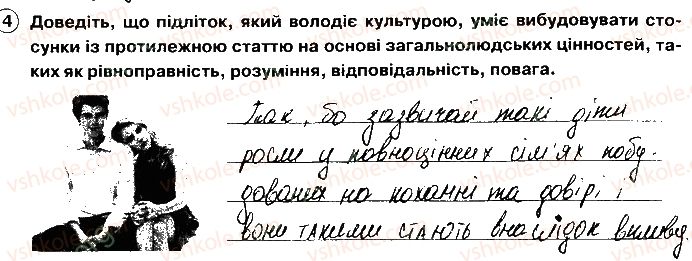 4 Доведіть, що підліток, який володіє культурою, уміє вибудовувати сто-
сунки із протилежною статтю на основі загальнолюдських цінностей, та-
ких як рівноправність, розуміння, відповідальність, повага.
Так, бо зазвичай такі діти
росли у повноцінних сім'ях побу-
дованих на коханні та довірі і
вони такими стають внаслідок
vshkole.com